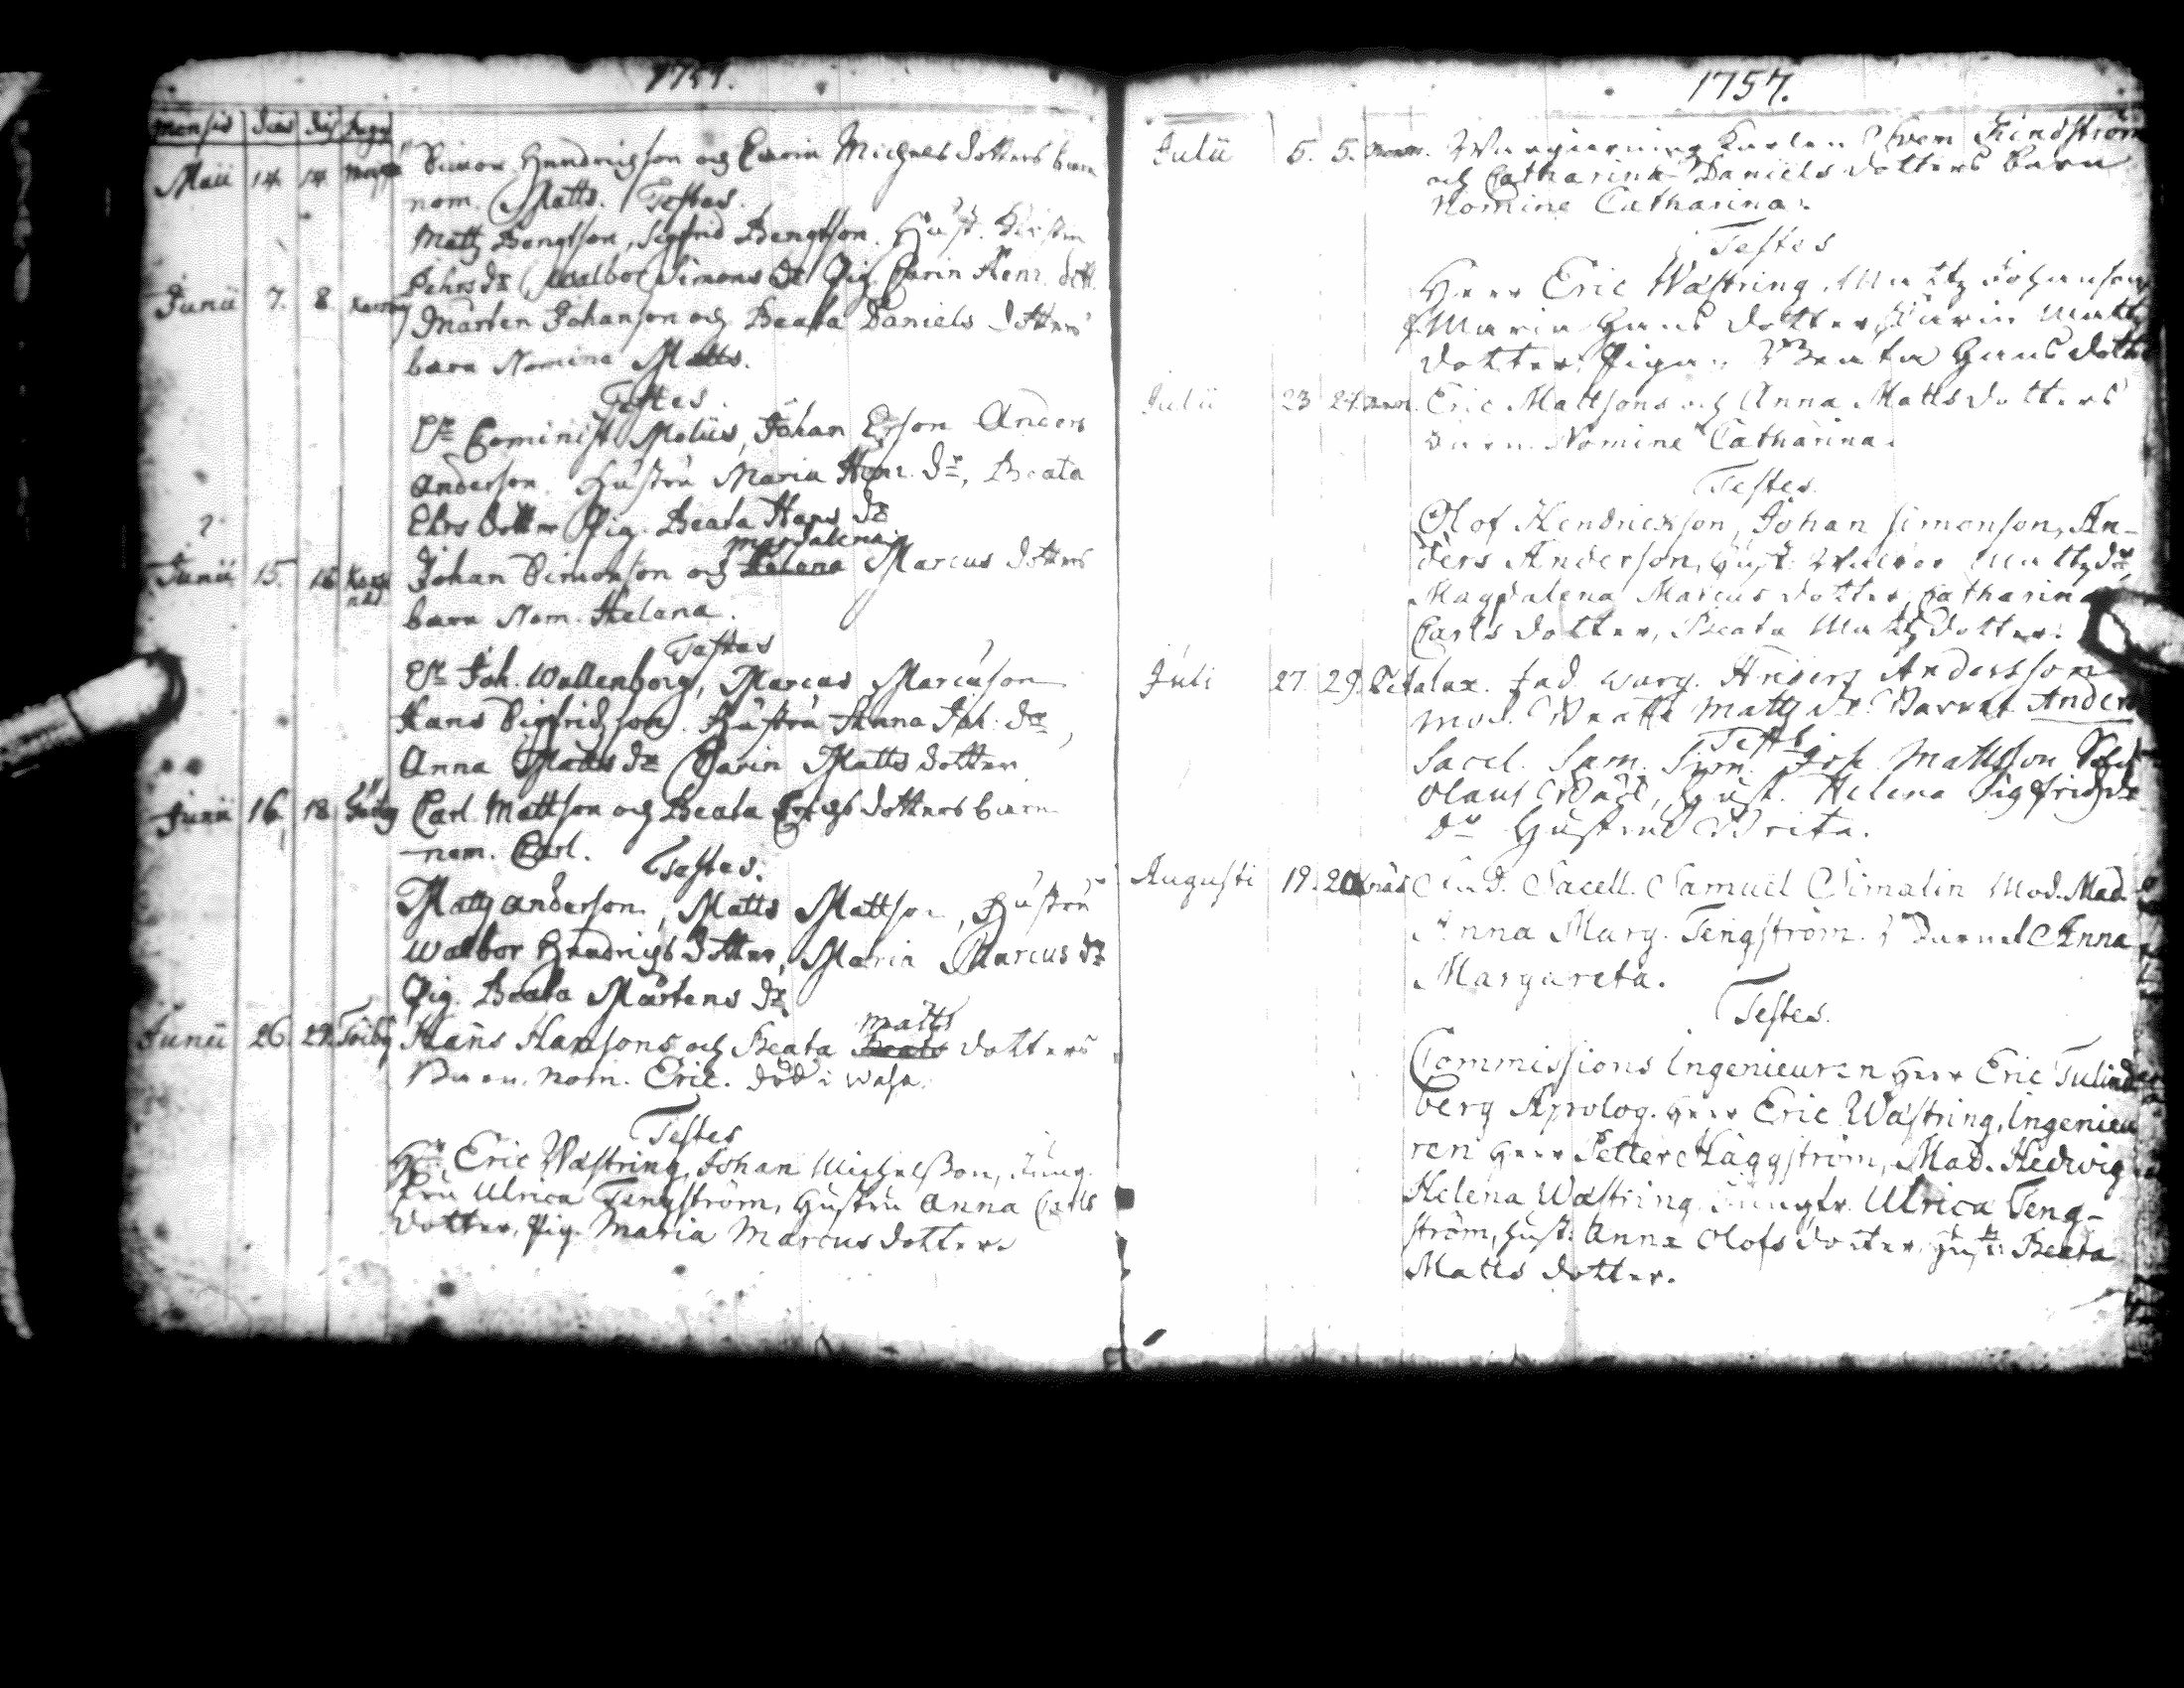 1757.
mensis dies dis pagus
Maii 14. 14. Simon Hendrichson och Carin Michels dotters barn
nom. Matts. Testes.
Matz Bengtson, Sigfrid Bengtson. Hust. Kirstin
Pehrs dr Walbor Simons dr Pig. Carin Henr. dott.
Junii 7. 8. Mårten Johanson och Beata Daniels dotters
barn Nomine Matts.
Testes.
Comminist. Johan Erson Anders
Anderson. Hustru Maria Henr. dr, Beata
Ehrs dotter Pig. Beata Hans dr
Magdalena
Junii 15. 16. Johan Simonson och Helena Marcus dotters
barn Nom. Helena.
Testes
Joh. Wallenborg, Marcus Marcuson
Hans Sigfridzson. Hustru Anna Joh. dr,
Anna Matts dr Carin Matts dotter
Junii 16. 18. Carl Mattson och Beata Erichs dotters barn
nom. Carl. Testes.
Matz anderson, Matts Mattson, Hustru
Walbor Hendrichs dotter, Maria Marcus dr
Pig. Beata Mårtens dr
matts
Junii 26. 29. Töiby Hans Hansons och Beata Beata dotters
Barn. nom. Eric. död i wasa.
Testes
Hr Eric Wastring, Johan Michelsson, Jung
fru Ulrica Tengström, Hustru Anna Carls
dotter, Pig. Maria Marcus dotter.
1757.
Julii 5. 5. Wargierning Karlen Sven Lindström
och Catharina Daniels dotters barn
Nomine Catharina.
Testes
Herr Eric Wastring, Matz Johanson
Maria Hans dotter, Carin Matts
dotter, Pigan Beata Hans dotter
Julii 23 24. Eric Mattsons och Anna Matts dotters
barn. Nomine Catharina.
Testes.
Olof Hendrickson, Johan Simonson, An-
ders Anderson, Hust. Walbor Matz dr,
Magdalena Marcus dotter, Catharina
Carls dotter, Beata Matz dotter.
Juli 27. 29. Petalax. fad. warg. Anders Andersson
mod. Beata Matz dr. Barnet Anders
Testes
Sacel. Sam. Sim. Joh. Mattsson
Olaus Hust. Helena Sigfridz dr
dr Hustru Brita.
Augusti 19. 20 Fad. Sacell. Samuel Simalin Mod. Mad.
Anna Marg. Tengström. Barnet Anna
Margareta.
Testes.
Commissions Ingenieuren Herr Eric Tulind
berg Apolog. Herr Eric Wastring, Ingenieu
ren Herr Petter Häggström, Mad. Hedwig
Helena Wastring. Jungfr. Ulrica Teng-
ström, Hust. Anna Olofs dotter, Hust. Beata
Matts dotter.